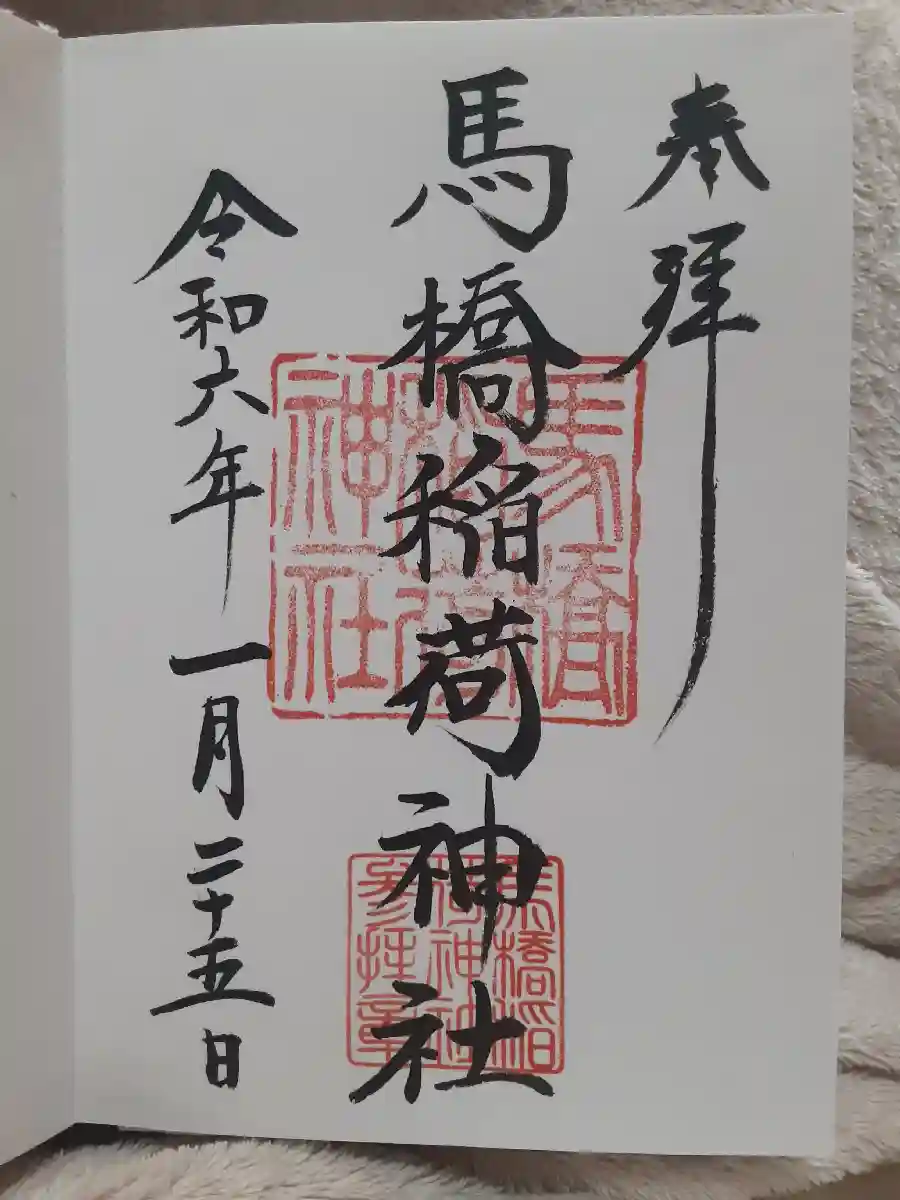 奉拝
馬橋稲荷神社
令和六年一月二十五日
馬橋
稲荷
神社
馬橋稲
荷神社
参拝章